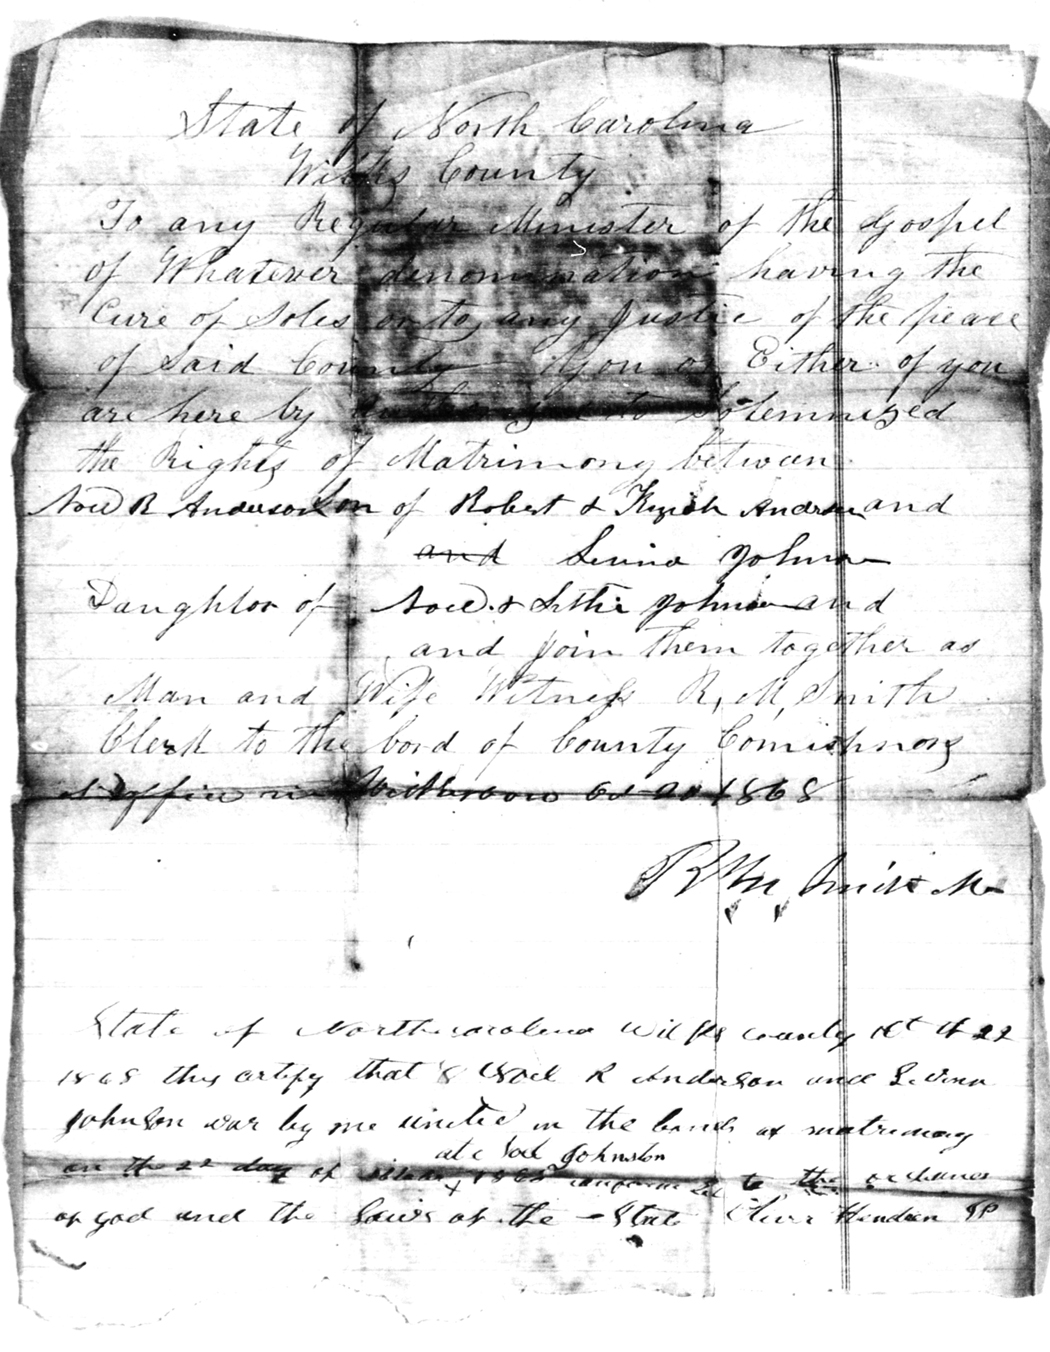 State of North Carolina
Wilkes County
To any Regular Minister of the Gospel
of Whatever denomination having the
Cure of Soles or to any Justice of the peace
of Said County You or Either of you
are here by Authorized to Solemnized
the Rights of Matrimony betwean
Noel R Anderson Son of Robert & Anderson and
and Johnson
Daughter of Noel & Johnson and
and join them together as
Man and Wife Witness R, M, Smith
Clerk to the bord of County
office in 1868
R M Smith
State of Northcarolina Wilks County 22
1868 this certify that Noel R Anderson and
Johnson war by me united in the bands of matrimony
at Noel Johnston
on the 22 day of 1868 to the
of god and the Laws of the State Hendren JP